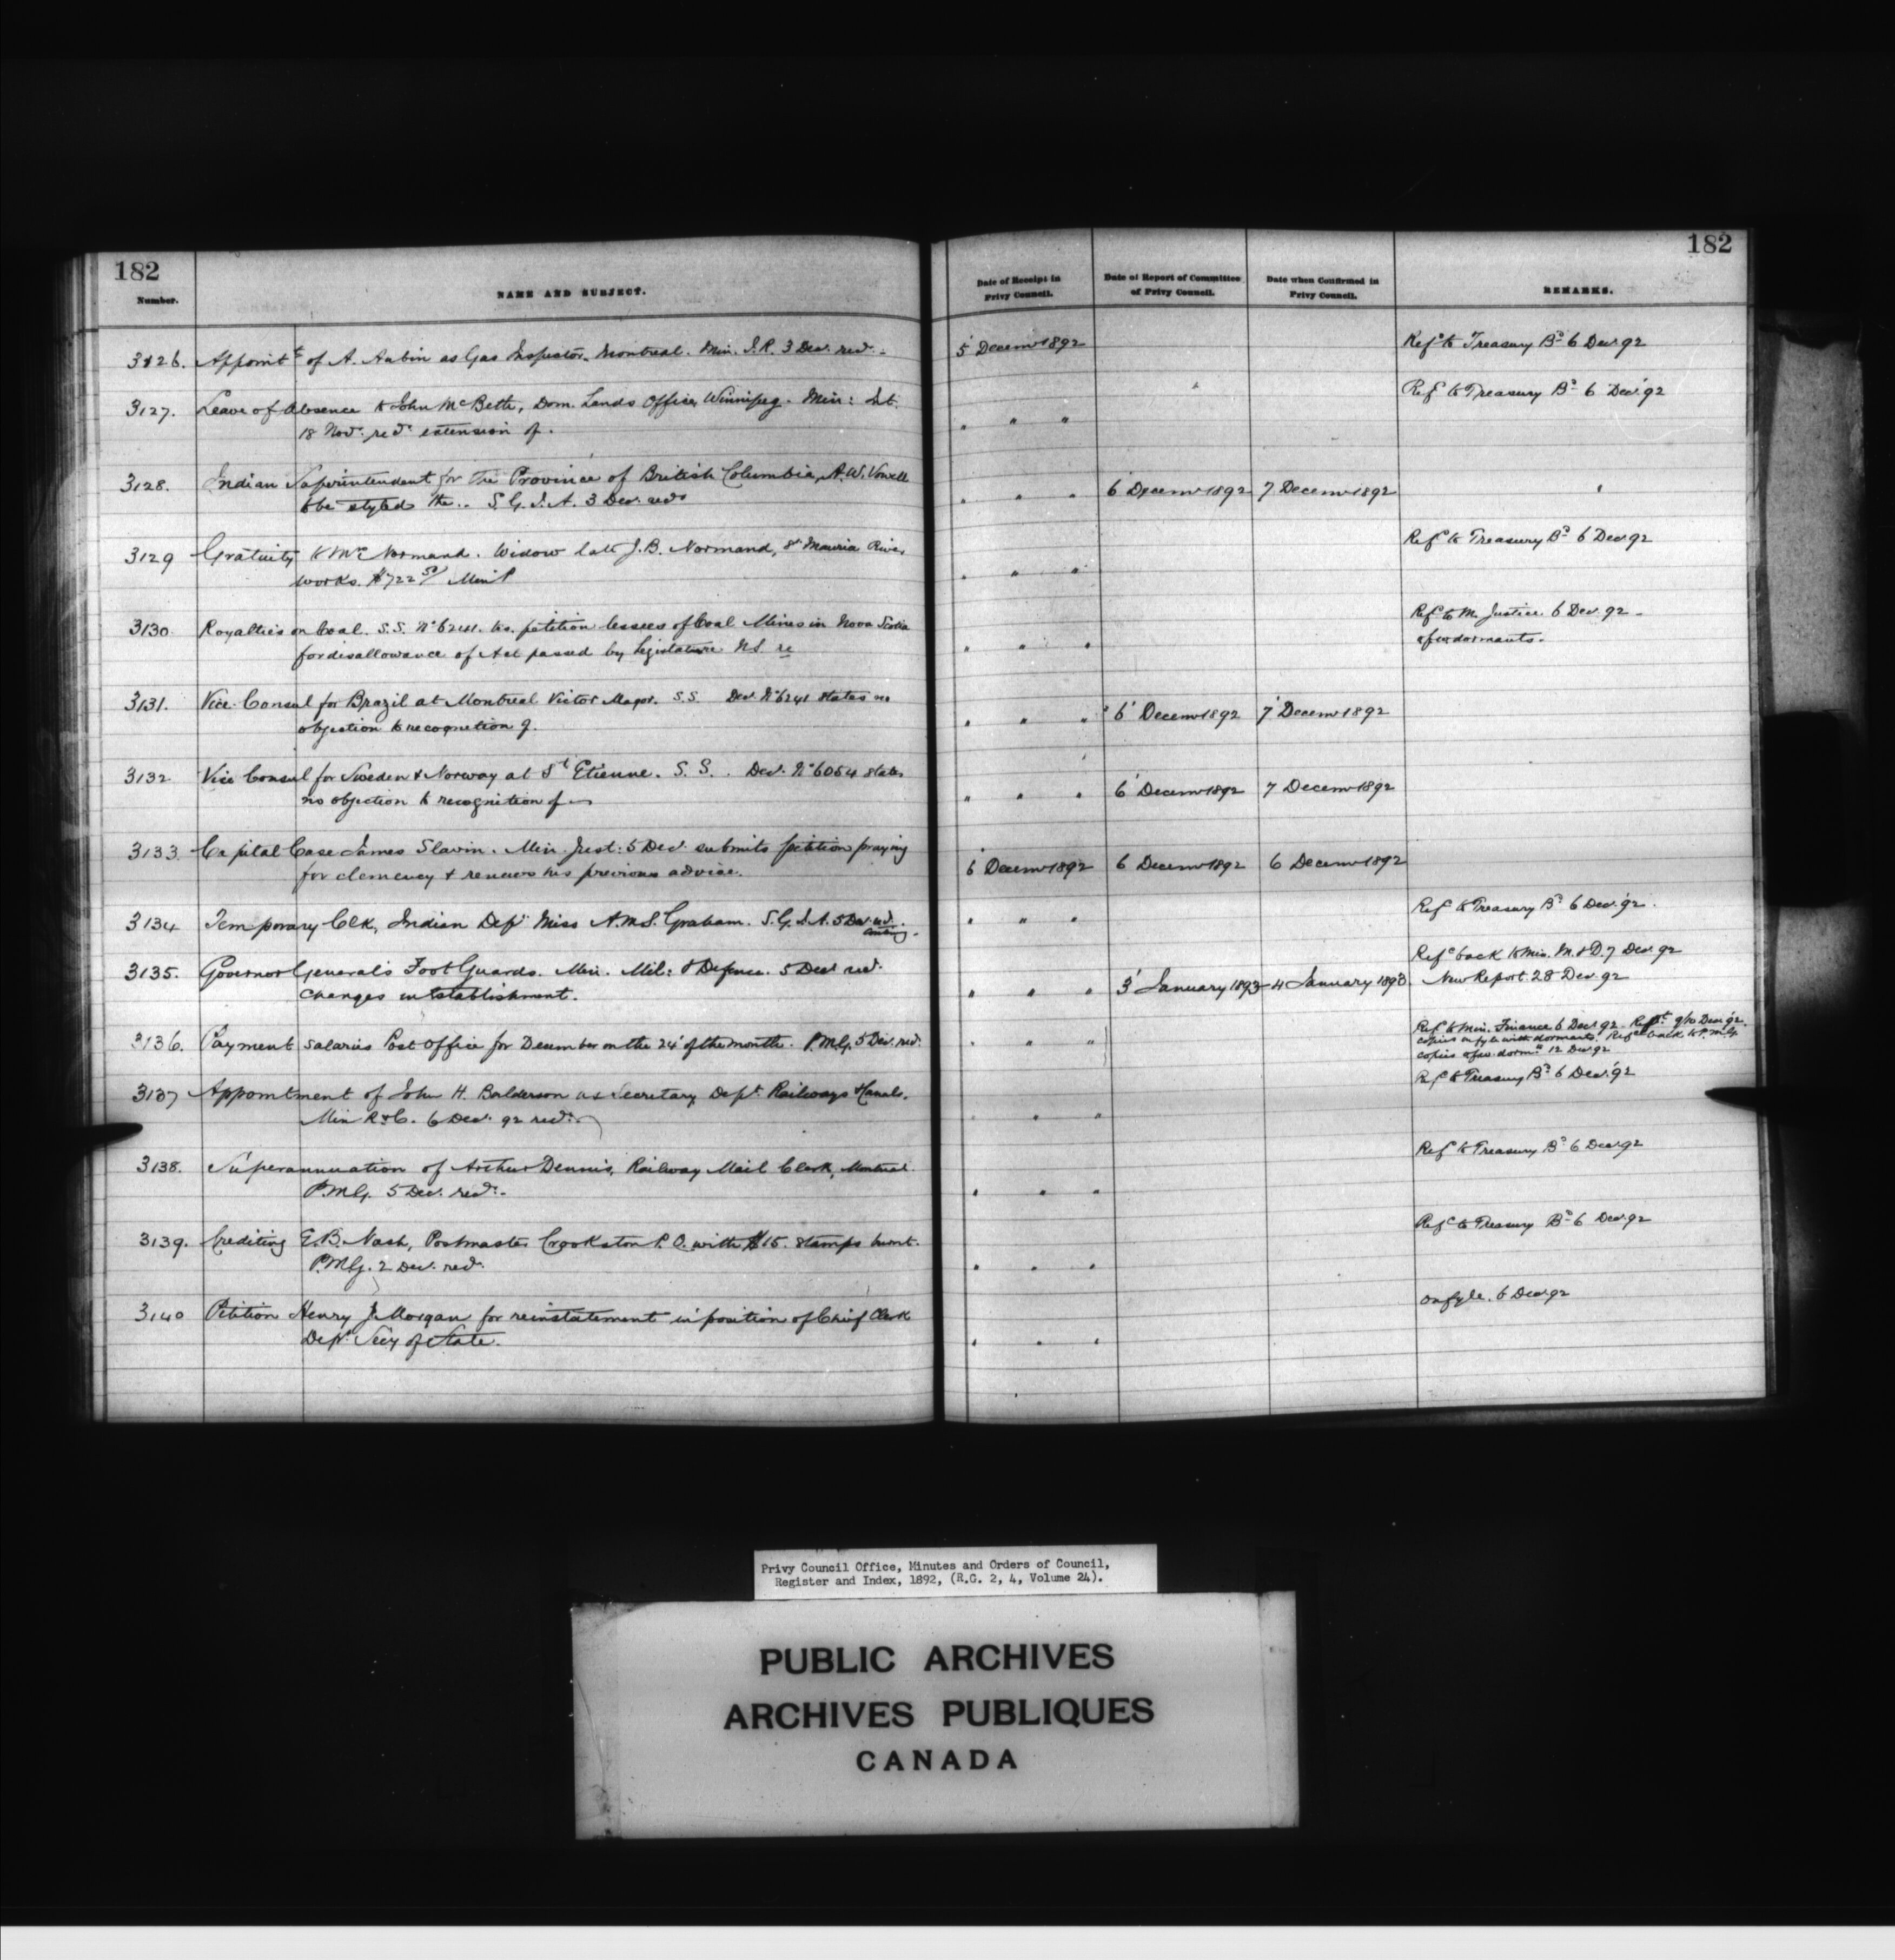 182
182
Number.
NAME AND SUBJECT.
Date of Receipt in
Privy Council.
Date of Report of Committee
of Privy Council.
Date when Confirmed in
Privy Council.
REMARKS.
3126. Appointt of A. Aubin as Gas Inspector. Montreal. Min. I.R. 3 Decr. recd. 5 Decemr 1892 Refd to Treasury Bd 6 Decr 92
3127. Leave of Absence to John McBeth, Dom. Lands Office, Winnipeg. Min: Int. Refd to Treasury Bd 6 Decr 92
18 Novr. recds extension of. " " "
3128. Indian Superintendent for the Province of British Columbia, A.W. Vowell
to be styled the.. S.G.I.A. 3 Decr. recds " " " 6 Decemr 1892 7 Decemr 1892
3129 Gratuity to Mrs Normand. Widow late J.B. Normand, St Maurice River Refd to Treasury Bd 6 Decr 92
works. $722 50/ Min P " " "
3130. Royalties on Coal. S.S. No 6241. petition lessees of Coal Mines in Nova Scotia Refd to M. Justice 6 Decr. 92 -
for disallowance of Act passed by Legislature N.S. re " " "
3131. Vice-Consul for Brazil at Montreal Victor Major. S.S. Decr. No 6241 states no
objection to recognition of. " " " 6 Decemr 1892 7 Decemr 1892
3132 Vice Consul for Sweden & Norway at St Etienne. S.S. Decr. No 6054 states
no objection to recognition of " " " 6 Decemr 1892 7 Decemr 1892
3133. Capital Case James Slavin. Min. Just: 5 Decr submits petition praying
for clemency & renews his previous advice. 6 Decemr 1892 6 Decemr 1892 6 Decemr 1892
3134 Temporary Clk, Indian Dept Miss A.M.S. Graham. S.G.I.A. 5 Decr. recd. " " " Refd to Treasury Bd 6 Decr 92.
3135. Governor General's Foot Guards. Min. Mil: & Defence. 5 Decr recd. Refd back to Min. M. & D. 7 Decr. 92
changes in establishment. " " " 3 January 1893 4 January 1893. New Report. 28 Decr. 92
3136. Payment salaries Post Office for December on the 24 of the month. P.M.G. 5 Decr. recd. " " " Refd to Min. Finance 6 Decr 92
Refd back to P.M.G.
12 Decr 92
3137 Appointment of John H. Balderson as Secretary Dept. Railways & Canals. Refd to Treasury Bd 6 Decr 92
Min R & C. 6 Decr. 92 recd. " "
3138. Superannuation of Arthur Dennis, Railway Mail Clerk, Montreal. Refd to Treasury Bd 6 Decr 92
P.M.G. 5 Decr. recd. " " "
3139. Crediting E.B. Nash, Postmaster Crookston P.O. with $15. stamps burnt. Refd to Treasury Bd 6 Decr. 92
P.M.G. 2 Decr. recd. " " "
3140 Petition Henry J. Morgan for reinstatement in position of Chief Clerk on fyle. 6 Decr 92
Dept. Secy of State. " " "
Privy Council Office, Minutes and Orders of Council,
Register and Index, 1892, (R.G. 2, 4, Volume 24).
PUBLIC ARCHIVES
ARCHIVES PUBLIQUES
CANADA